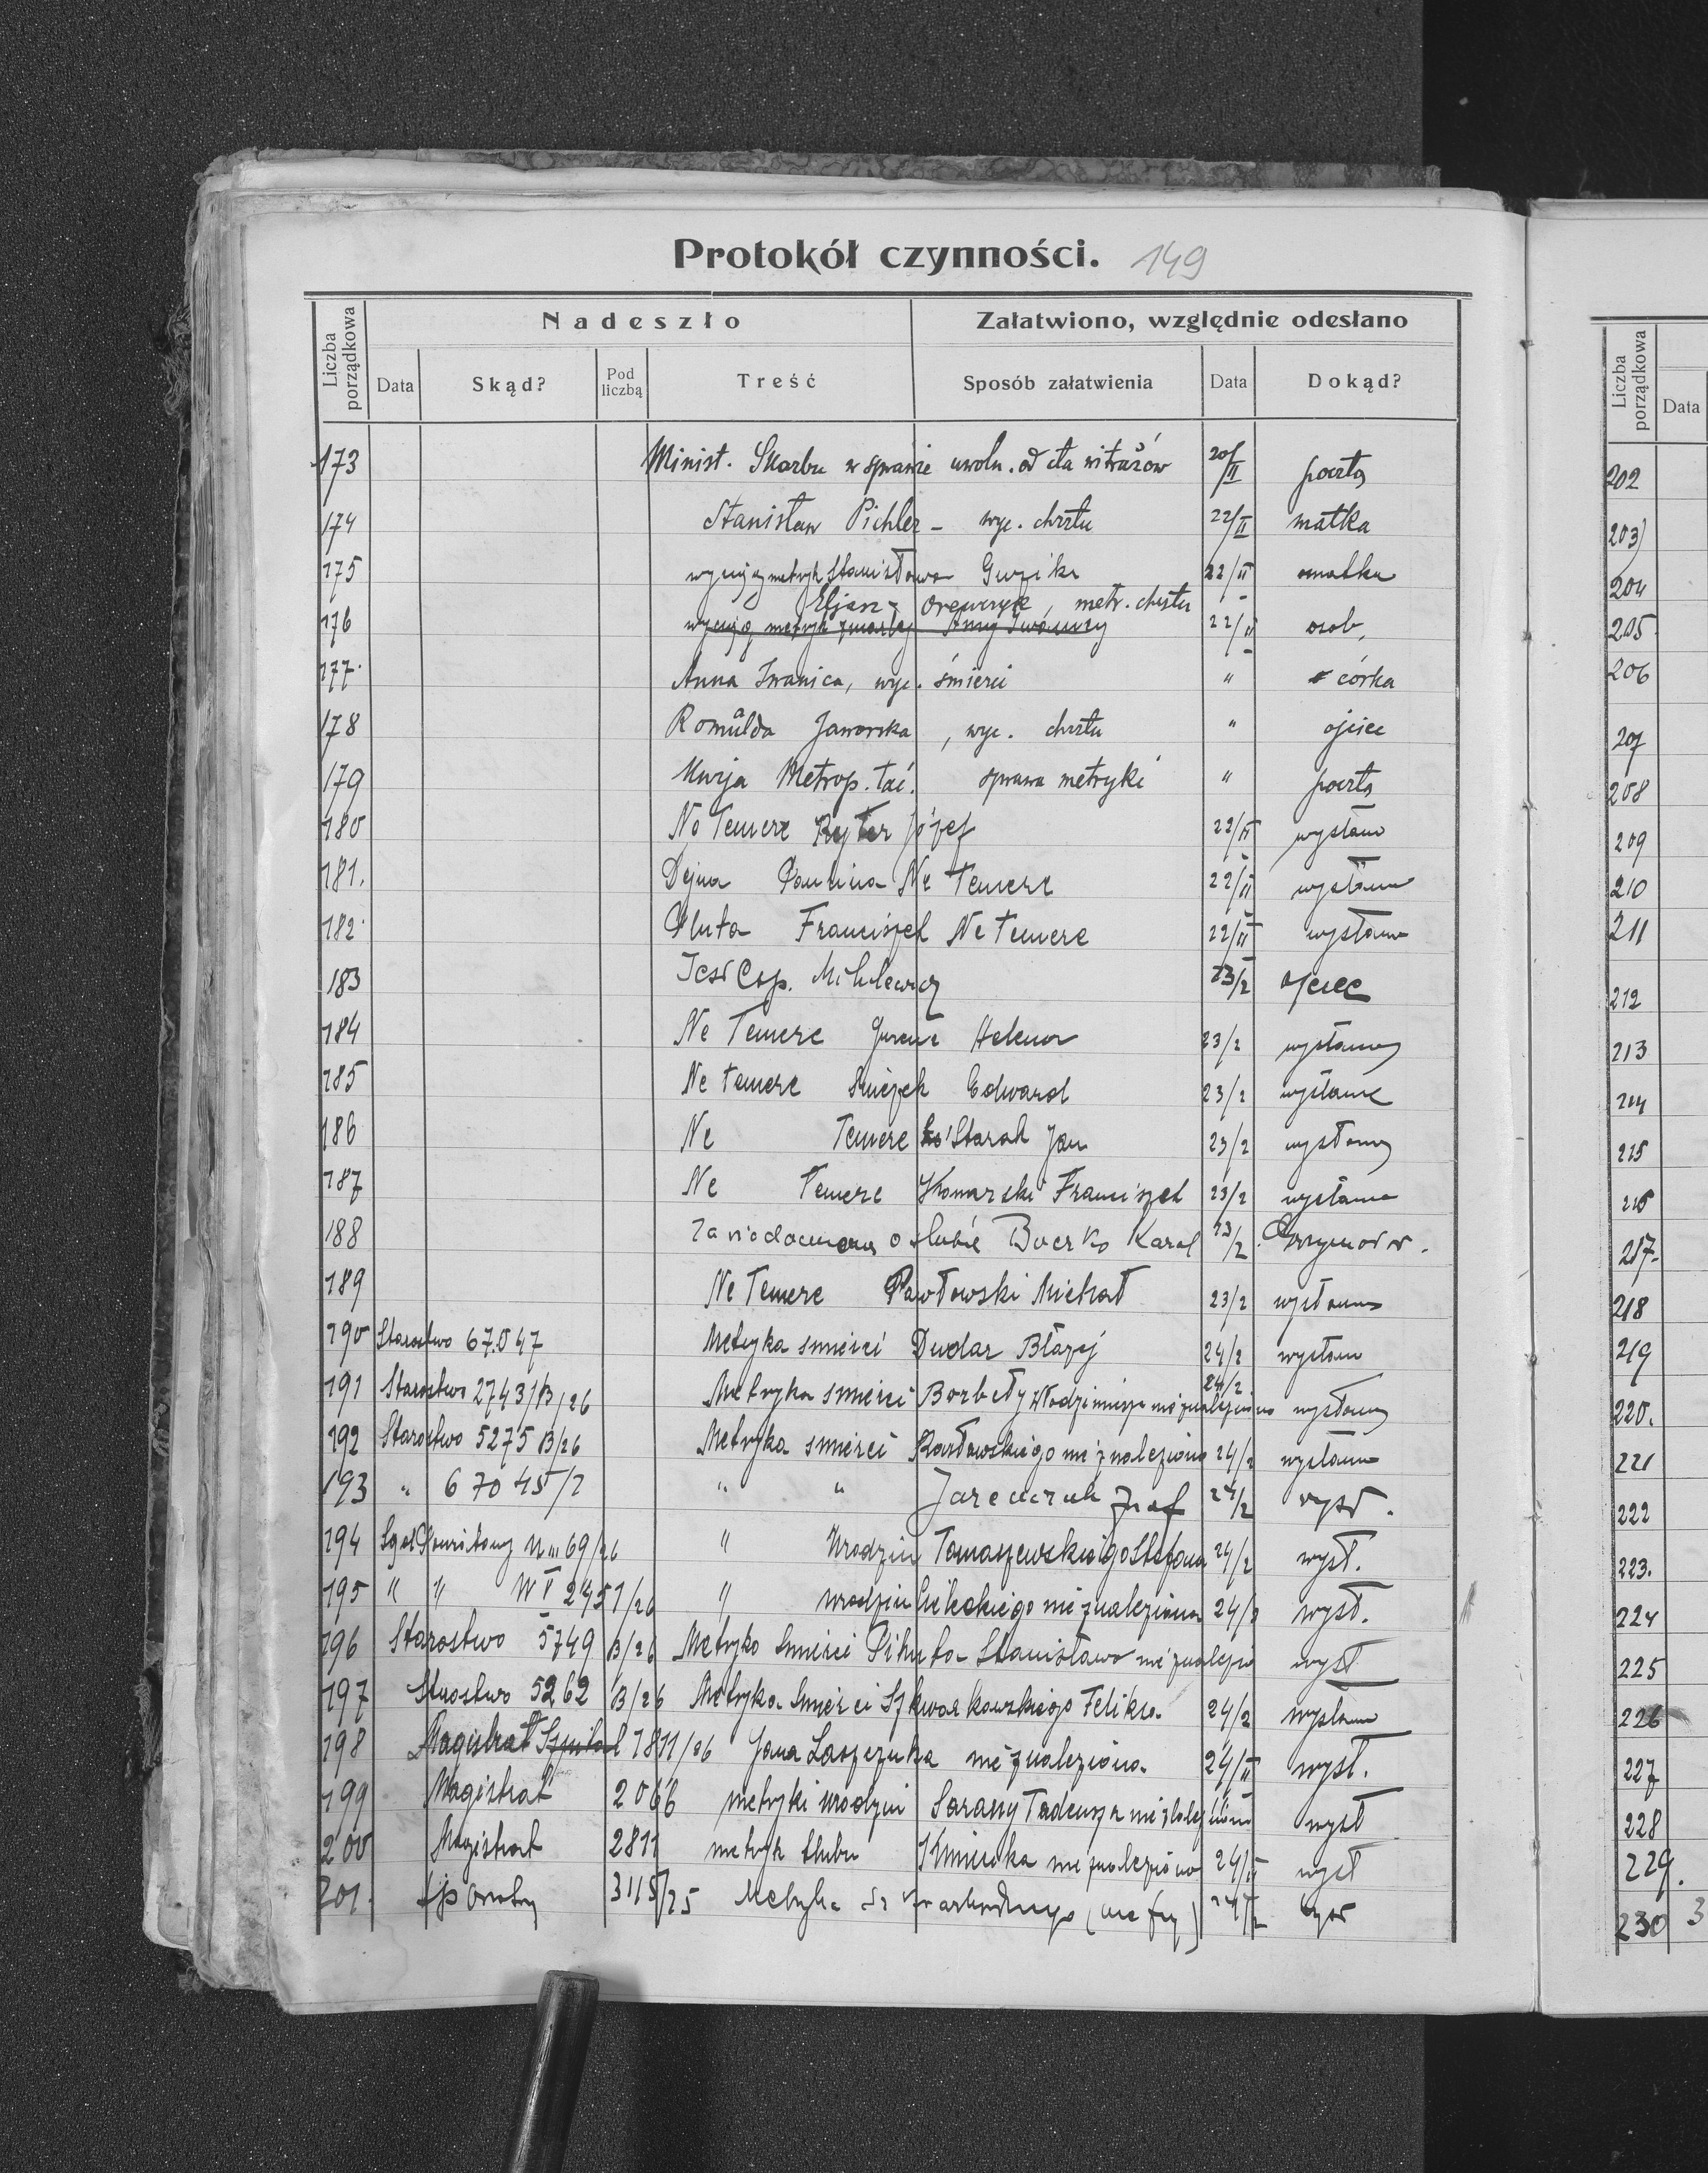 Protokół czynności. 149
Liczba porządkowa
Nadeszło
Załatwiono, względnie odesłano
Data Skąd? Pod liczbą Treść Sposób załatwienia Data Dokąd?
173 Minist. Skarbu w sprawie uwoln. od cła witrażów 20/II poczta
174 Stanisław Pichler - wyc. chrztu 22/II matka
175 metryk Stanisława Guzika 22/II matka
Eljasz - metr. chrztu
176 22/II osob.
177. Anna Iwanica, wyc. śmierci " córka
178 Romualda Jaworska, wyc. chrztu " ojciec
179 Kurja Metrop. łać. sprawa metryki " poczta
180 Ne Temere Ryter Józef 22/II wysłano
181. Dejna Paulina Ne Temere 22/II wysłano
182. Gluta Franciszek Ne Temere 22/II wysłano
183 23/2 ojciec
184 Ne Temere Helena 23/2 wysłany
185 Ne temere Edward 23/2 wysłane
186 Ne Temere Starak Jan 23/2 wysłany
187 Ne Temere Komarski Franciszek 23/2 wysłano
188 o ślubie Boerko Karol 23/2
189 Ne Temere Pawłowski Michał 23/2 wysłano
190 Starostwo 67.047 Metryka śmierci Dudar Błażej 24/2 wysłano
191 Starostwo 27431/B/26 Metryka śmierci Borbeły Włodzimierza nie znaleziono 24/2 wysłany
192 Starostwo 5275 B/26 Metryka śmierci nie znaleziono 24/2 wysłano
193 " 67045/2 " " Jaremczuk Józef 24/2 wysł.
194 Sąd Powiatowy 69/26 " Urodzin Tomaszewskiego Stefana 24/2 wysł.
195 " " 2451/26 " urodzin nie znaleziono 24/2 wysł.
196 Starostwo 5749 B/26 Metryka śmierci Pikuta Stanisława nie wysł
197 Starostwo 5262 B/26 Metryka śmierci Szkwarkowskiego Feliksa 24/2 wysłano
198 Magistrat Szpital 7811/26 Jana Laszczuka nie znaleziono. 24/II wysł.
199 Magistrat 2066 metryki urodzin Sarany Tadeusza nie wysł
200 Magistrat 2811 metryk ślubu Kmiecika nie znaleziono 24/II wysł
201. 3115/25 Metryka 24/2 wysł
Liczba porządkowa
Data
202
203)
204
205.
206
207
208
209
210
211
212
213
214
215
216
217.
218
219
220.
221
222
223.
224
225
226
227
228
229.
230 3